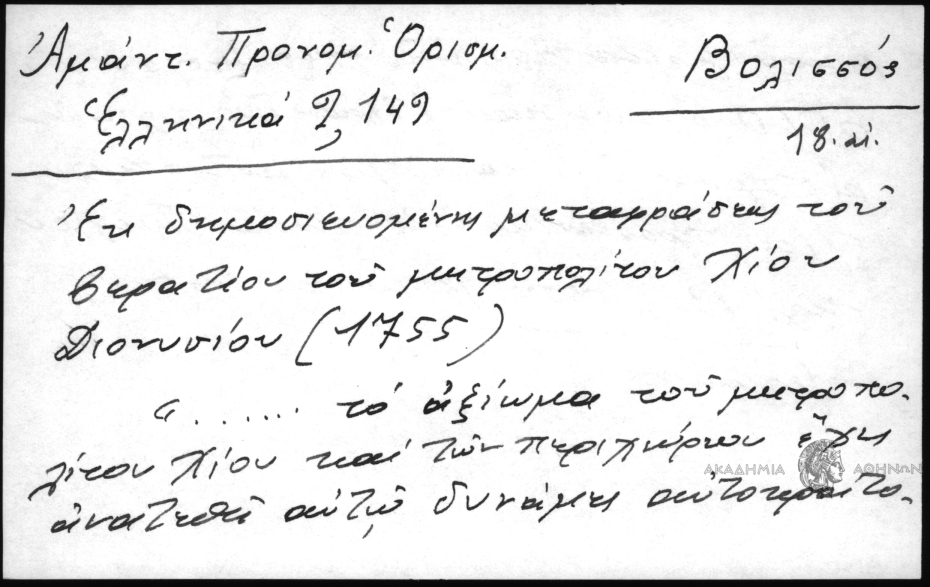 Ἀμάντ. Προνομ. Ὁρισμ.
Ἑλληνικά 9, 149
Βολισσός
18. αἰ.
Ἐκ δημοσιευομένης μεταφράσεως τοῦ
βερατίου τοῦ μητροπολίτου Χίου
Διονυσίου (1755)
"....... τό ἀξίωμα τοῦ μητροπο-
λίτου Χίου καί τῶν περιχώρων
ἀνατεθῆ αὐτῷ δυνάμει αὐτοκρατο-
ΑΚΑΔΗΜΙΑ ΑΘΗΝΩΝ